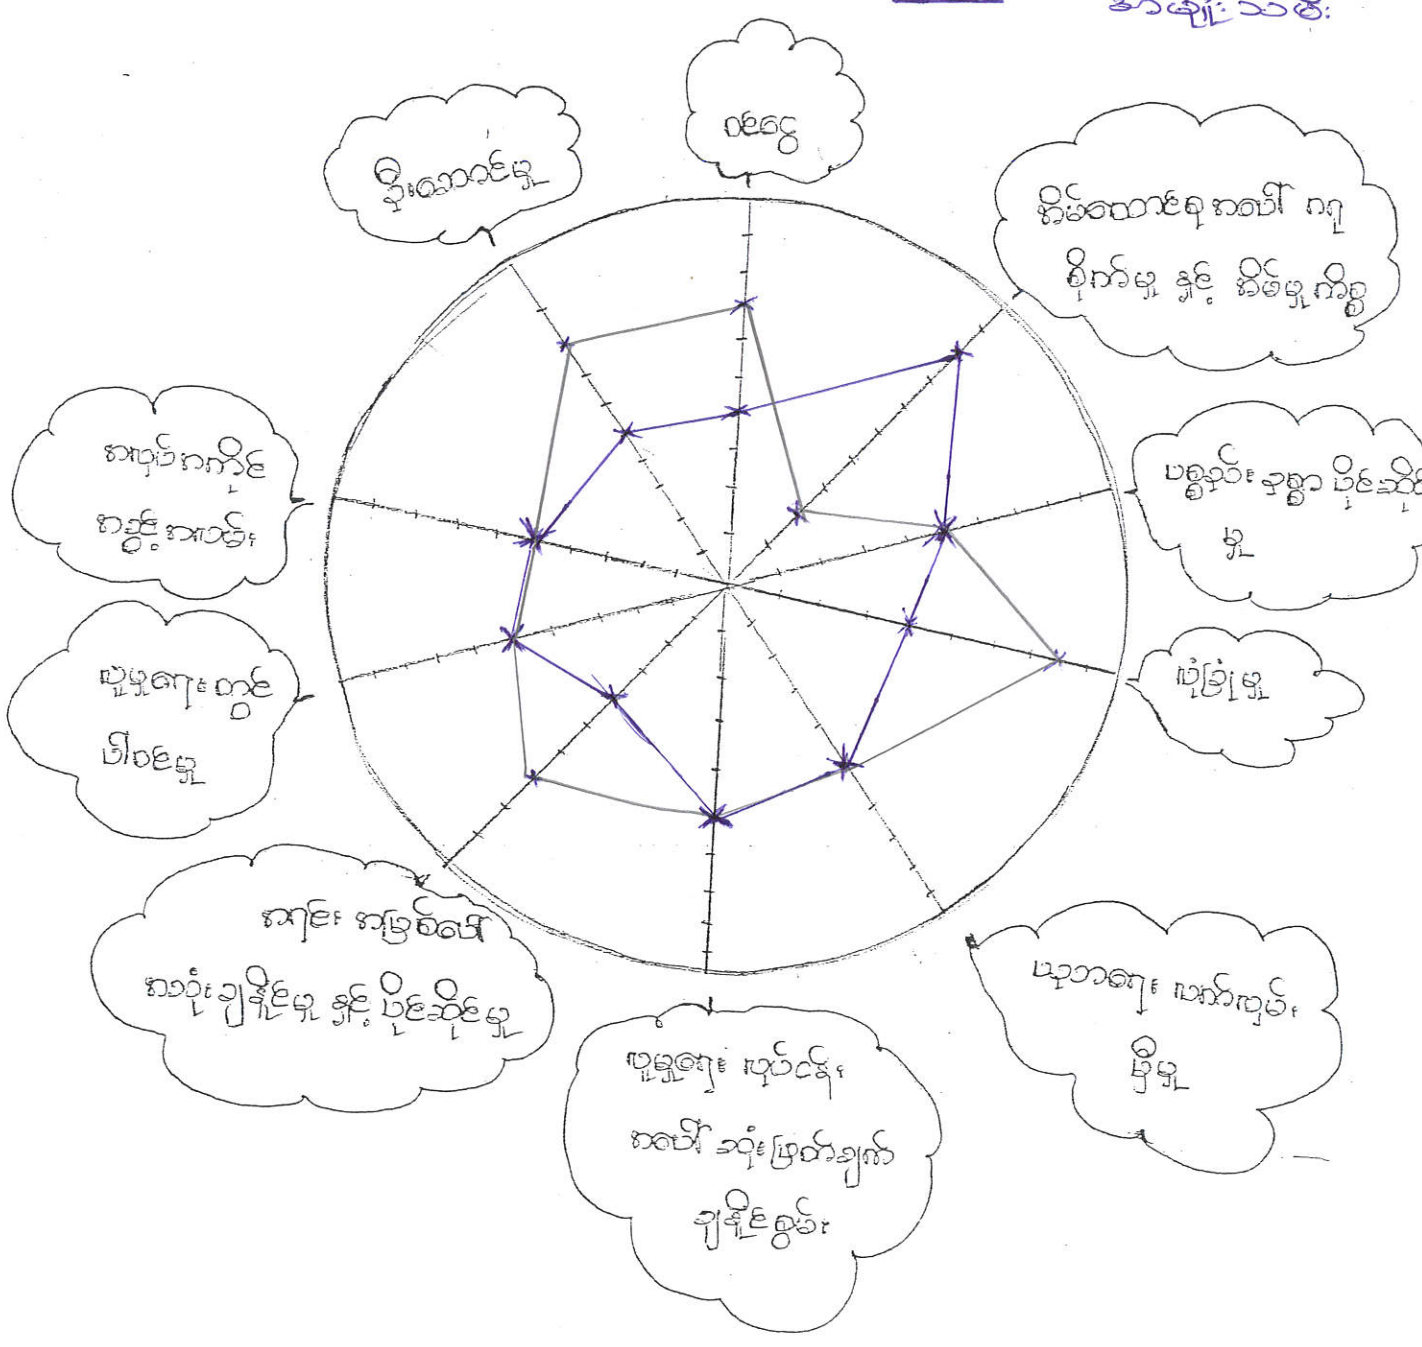 အမျိုးသမီး
ဝင်ငွေ
ဦးဆောင်မှု
အိမ်ထောင်စုအပေါ် ဂရု
စိုက်မှု နှင့် အိမ်မှုကိစ္စ
ပစ္စည်းဥစ္စာ ပိုင်ဆိုင်
မှု
လုံခြုံမှု
ပညာရေး လက်လှမ်း
မှီမှု
လူမှုရေး လုပ်ငန်း
အပေါ် ဆုံးဖြတ်ချက်
ချနိုင်စွမ်း
အရင်း အမြစ်ပေါ်
အသုံးချနိုင်မှု နှင့် ပိုင်ဆိုင်မှု
လူမှုရေးတွင်
ပါဝင်မှု
အလုပ်အကိုင်
အခွင့်အလမ်း